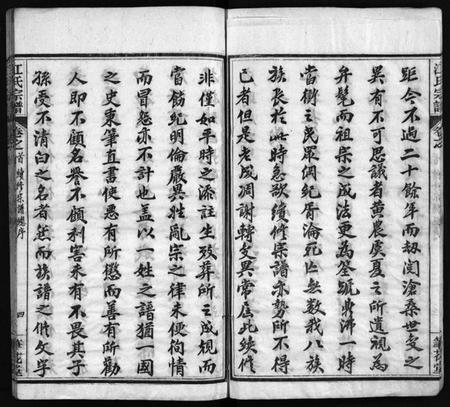 江氏宗譜
卷之
距今不過二十餘年而劫閱滄桑世變之
異有不可思議者黄農虞夏之所遺視為
弁髦而祖宗之成法更為筌蹏鼎沸一時
當衛之民軍倜紀胥淪死亡無數我八族
族長於此時急欲續修宗譜亦勢所不得
已者但是老成凋謝轉變異常居此續修
非僅如平時之添註生歿葬所之成規而
當飭紀明倫嚴異姓亂宗之律未便徇情
而冒怨亦不計也蓋以一姓之譜猶一國
之史秉筆直書使惡有所懲而善有所勸
人即不顧名譽不顧利害未有不畏其子
孫受不清白之名者然而族譜之修文字
江氏宗譜
卷之首 續修宗譜總序
四